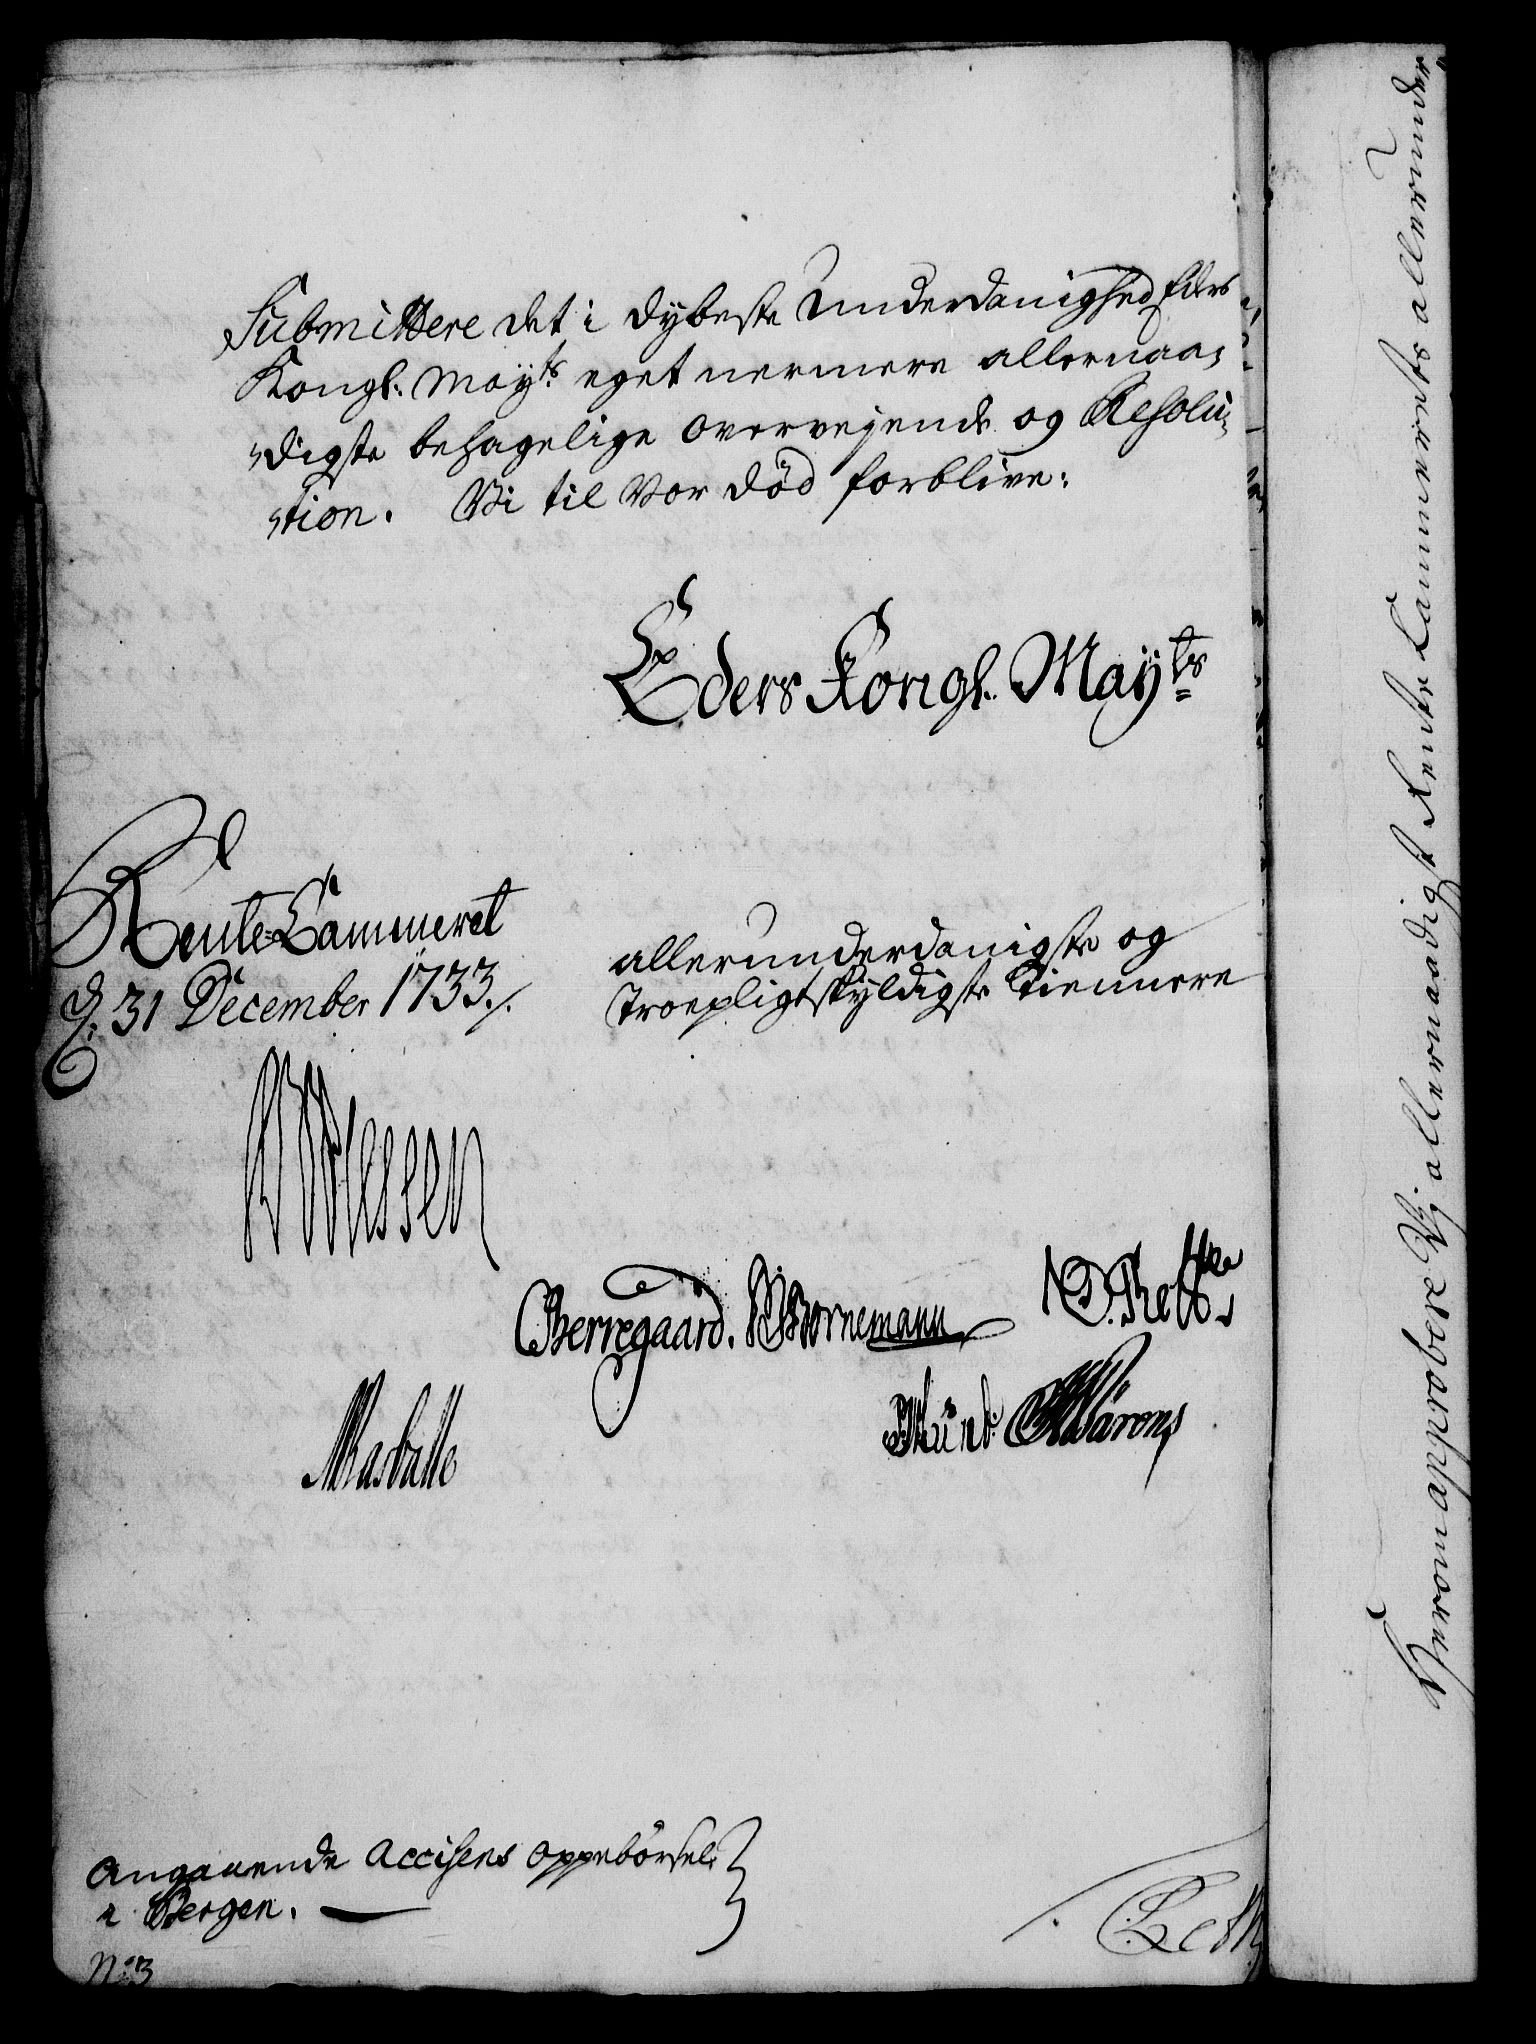 Submittere det i dybeste Underdanighed Eders
Kongl: Mayts eget nermere allernaa-
digste behagelige overvejende og Resolu-
tion. Vi til Vor død forblive:
Eders Kongl. Mayts
Rente Cammeret
d: 31 December 1733./.
allerunderdanigste og
troepligtskyldigste Tiennere
Berregaard. Bornemann
Angaaende Accisens Oppebörsel
i Bergen.
No: 3
Herom approbere Vi allernaadigst Rente Cammerets allerunder